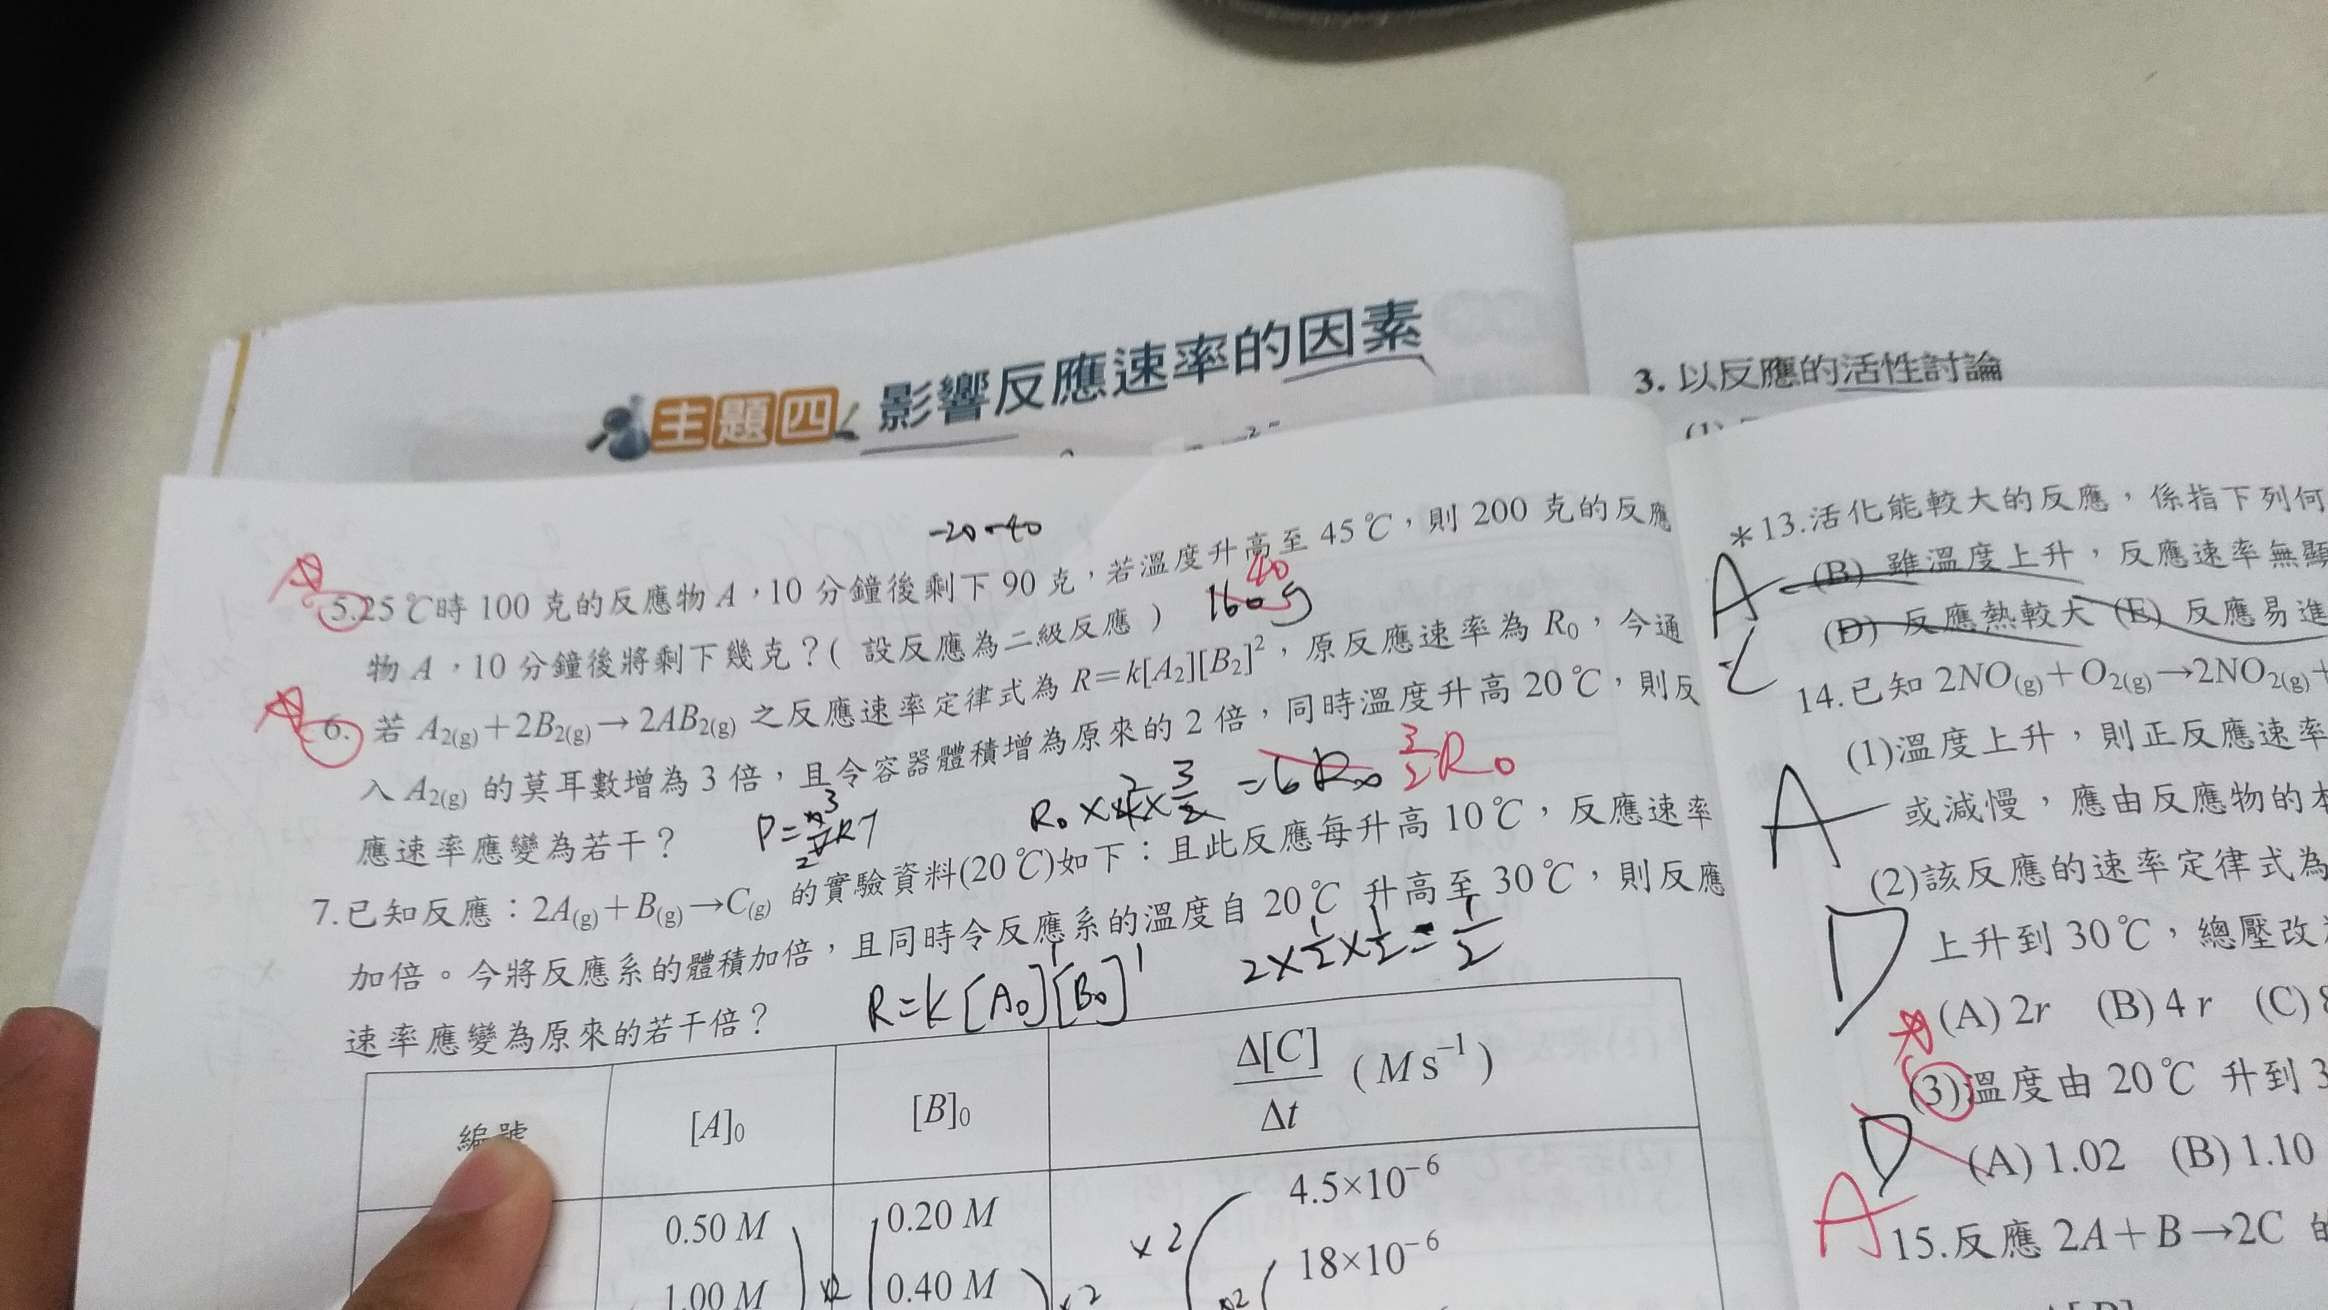 主題四 影響反應速率的因素
3. 以反應的活性討論
-20 -40
5. 25℃時 100 克的反應物 A，10 分鐘後剩下 90 克，若溫度升高至 45℃，則 200 克的反應
物 A，10 分鐘後將剩下幾克？( 設反應為二級反應 ) 160g 40
6. 若 A2(g)+2B2(g)→2AB2(g) 之反應速率定律式為 R=k[A2][B2]²，原反應速率為 R0，今通
入 A2(g) 的莫耳數增為 3 倍，且令容器體積增為原來的 2 倍，同時溫度升高 20℃，則反
應速率應變為若干？
=6R0 3/2 R0
7. 已知反應：2A(g)+B(g)→C(g) 的實驗資料(20℃)如下：且此反應每升高 10℃，反應速率
加倍。今將反應系的體積加倍，且同時令反應系的溫度自 20℃ 升高至 30℃，則反應
速率應變為原來的若干倍？
R=k[A0]¹[B0]¹ 2×1/2×1/2=1/2
編號 [A]0 [B]0 Δ[C]/Δt (M s⁻¹)
0.50 M 0.20 M 4.5×10⁻⁶
1.00 M 0.40 M 18×10⁻⁶
×2 ×2 ×2 ×2
＊13. 活化能較大的反應，係指下列何
A (B) 雖溫度上升，反應速率無顯
(D) 反應熱較大 (E) 反應易進
14. 已知 2NO(g)+O2(g)→2NO2(g)+
(1)溫度上升，則正反應速率
A 或減慢，應由反應物的本
(2)該反應的速率定律式為
D 上升到 30℃，總壓改
(A) 2r (B) 4r (C) 8
(3)溫度由 20℃ 升到 3
D (A) 1.02 (B) 1.10
A 15. 反應 2A+B→2C 的